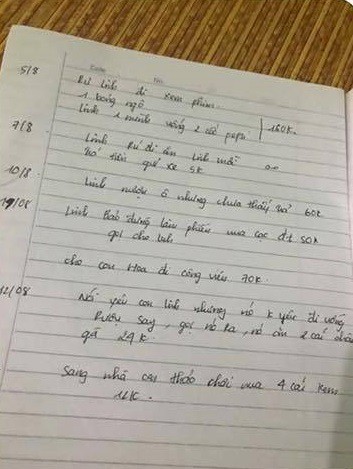 Date No
5/8 Rủ Linh đi xem phim
1 bỏng ngô
Linh 1 mình uống 2 cốc pepsi 160k.
7/8 Linh Rủ đi ăn Linh mời
nó tiền gửi xe 5k
10/8 Linh mượn ô nhưng chưa thấy trả 60k
Linh bảo đừng làm phiền mua cạc đt 50k
gọi cho Linh
cho con Hoa đi công viên 70k.
12/08 Nói yêu con Linh nhưng nó k yêu đi uống
Rượu say, gọi nó Ra, nó ăn 2 cái
gà 24k.
Sang nhà con thảo chơi mua 4 cái kem
12k.